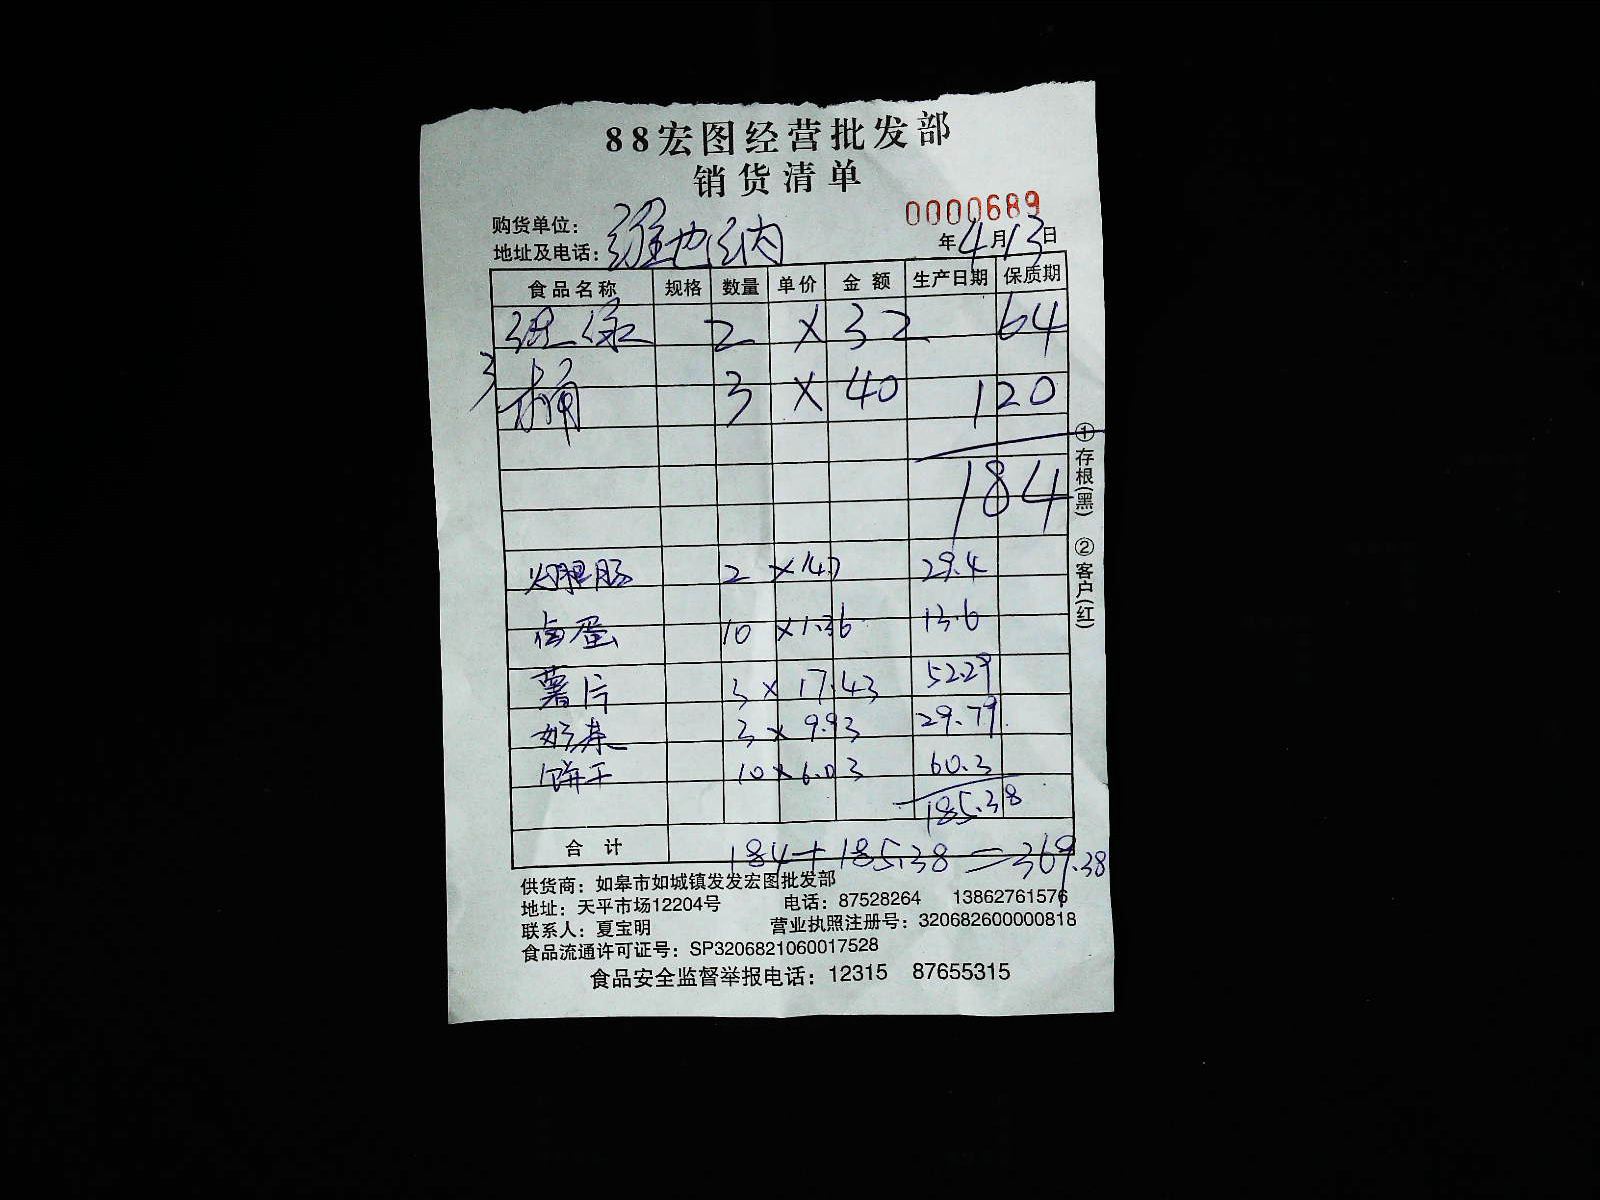 88宏图经营批发部
销货清单
0000689
购货单位:
地址及电话: 维也纳
年4月13日
食品名称 规格 数量 单价 金额 生产日期 保质期
2 × 32 64
桶 3 × 40 120
184
2 × 14.7 29.4
卤蛋 10 × 1.36 13.6
薯片 3 × 17.43 52.29
奶茶 3 × 9.93 29.79
饼干 10 × 6.03 60.3
185.38
合计 184+185.38=369.38
①存根(黑) ②客户(红)
供货商:如皋市如城镇发发宏图批发部
地址:天平市场12204号 电话:87528264 13862761576
联系人:夏宝明 营业执照注册号:320682600000818
食品流通许可证号:SP3206821060017528
食品安全监督举报电话:12315 87655315